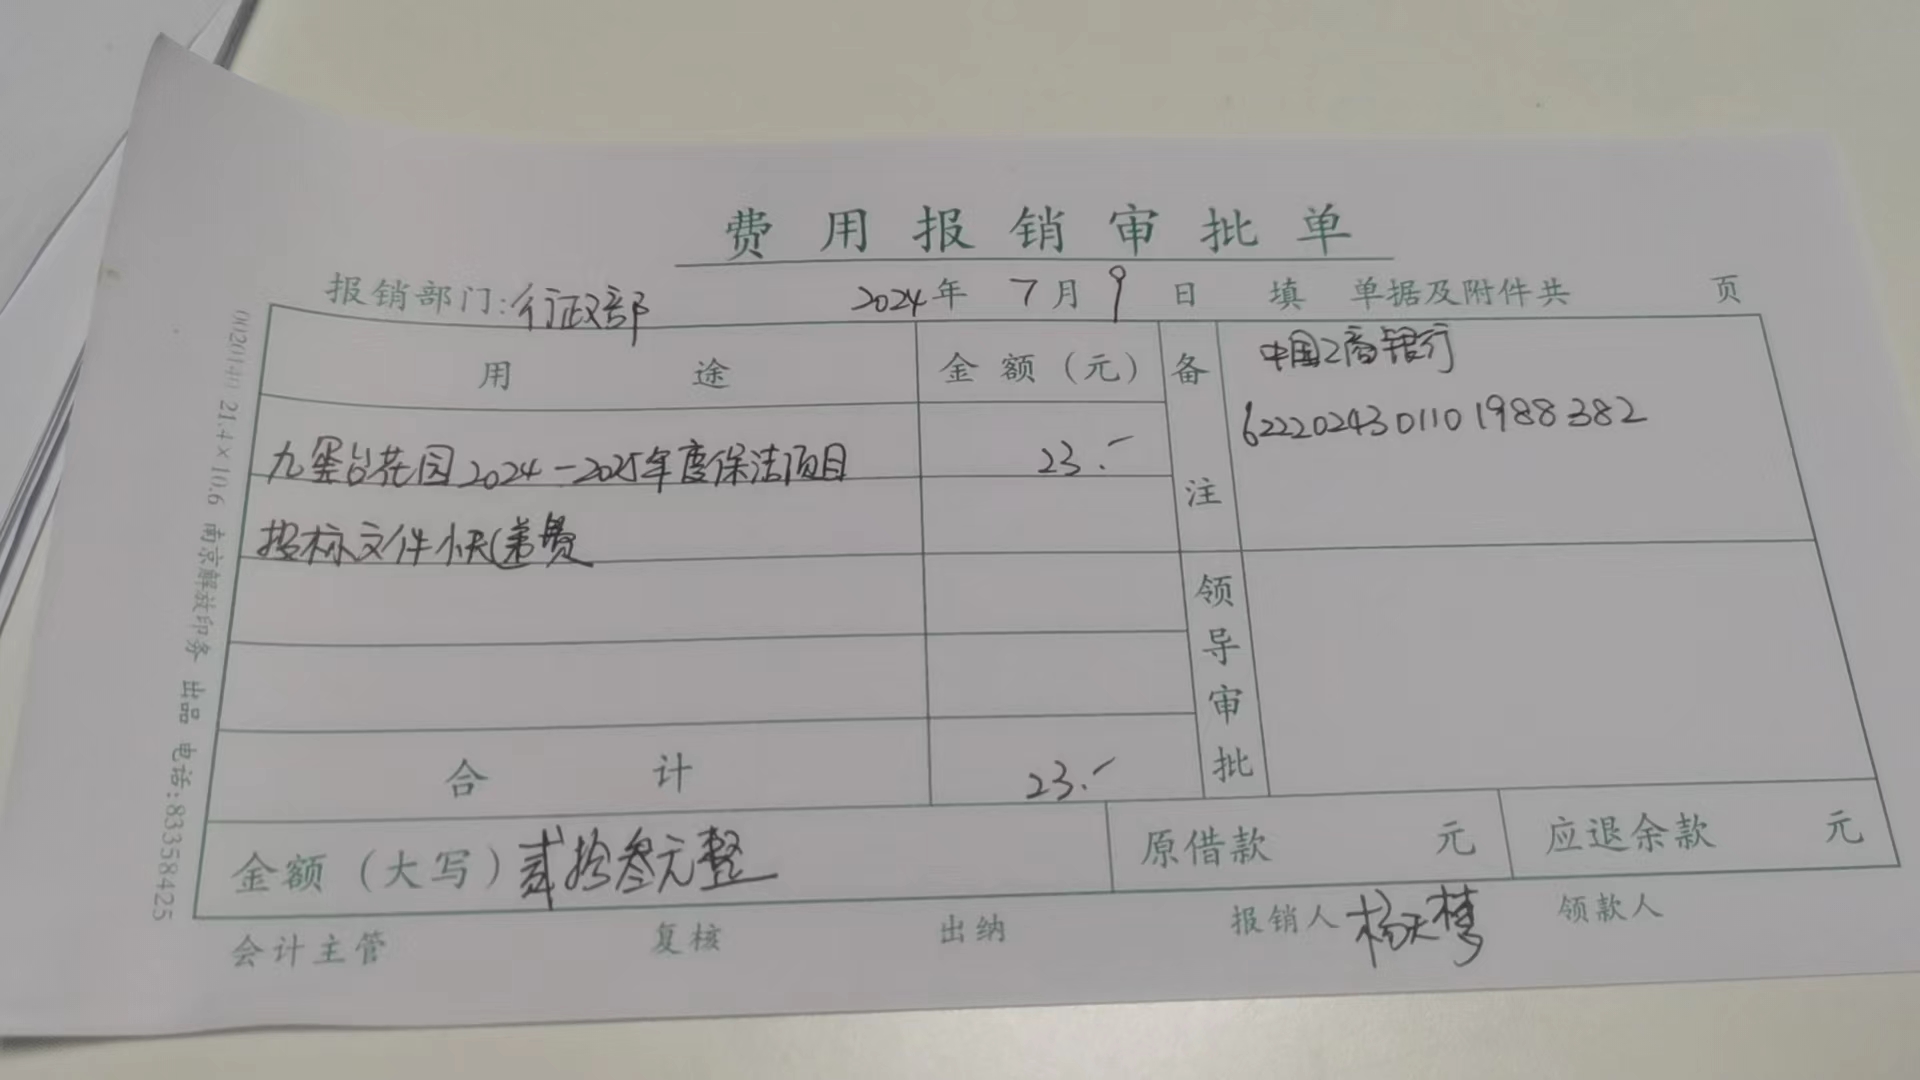 费用报销审批单
报销部门:行政部 2024年 7月9日 填 单据及附件共 页
用途 金额(元) 备注 中国工商银行
6222024301101988382
九玺台花园2024-2025年度保洁项目 23.-
投标文件快递费
领导审批
合计 23.-
金额(大写)贰拾叁元整 原借款 元 应退余款 元
会计主管 复核 出纳 报销人 杨天梦 领款人
21.4×10.6 南京解放印务 出品 电话:83358425